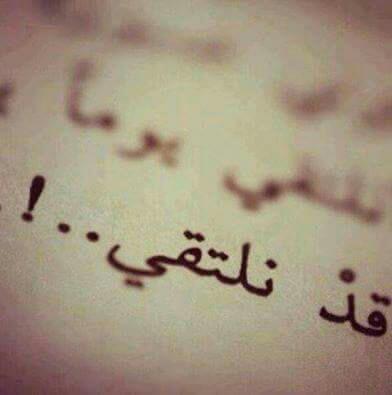 نلتقي يوماً
قدْ نلتقي..!